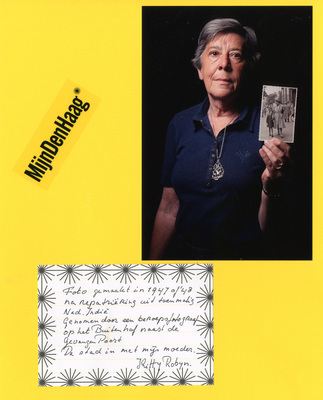 MijnDenHaag
Foto gemaakt in 1947 of '48
na Repatriëring uit toenmalig
Ned. Indië
Genomen door een beroepsfotograaf
op het Buitenhof naast de
Gevangen Poort
De stad in met mijn moeder.
Kitty Robyn.